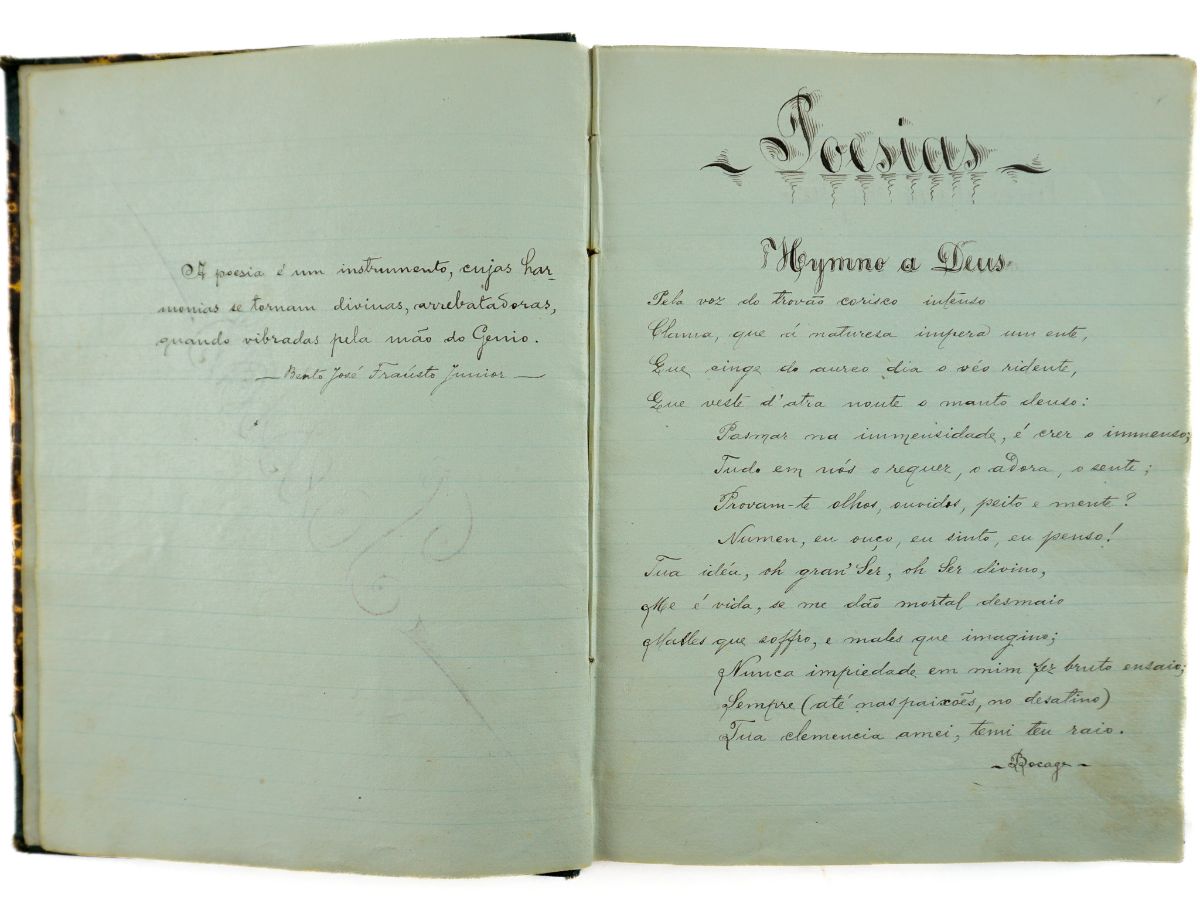 A poesia é um instrumento, cujas har-
monias se tornam divinas, arrebatadoras,
quando vibradas pela mão do Genio.
— Bento José Fraústo Junior —
~ Poesias ~
Hymno a Deus
Pela voz do trovão corisco intenso
Clama, que á naturesa impera um ente,
Que cinge do aureo dia o véo ridente,
Que veste d'atra noute o manto denso:
Pasmar na immensidade, é crer o immenso;
Tudo em nós o requer, o adora, o sente;
Provam-te olhos, ouvidos, peito e mente?
Numen, eu ouço, eu sinto, eu penso!
Tua idéa, oh gran' Ser, oh Ser divino,
Me é vida, se me dão mortal desmaio
Malles que soffro, e males que imagino;
Nunca impiedade em mim fez bruto ensaio;
Sempre (até nas paixões, no desatino)
Tua clemencia amei, temi teu raio.
~ Bocage ~